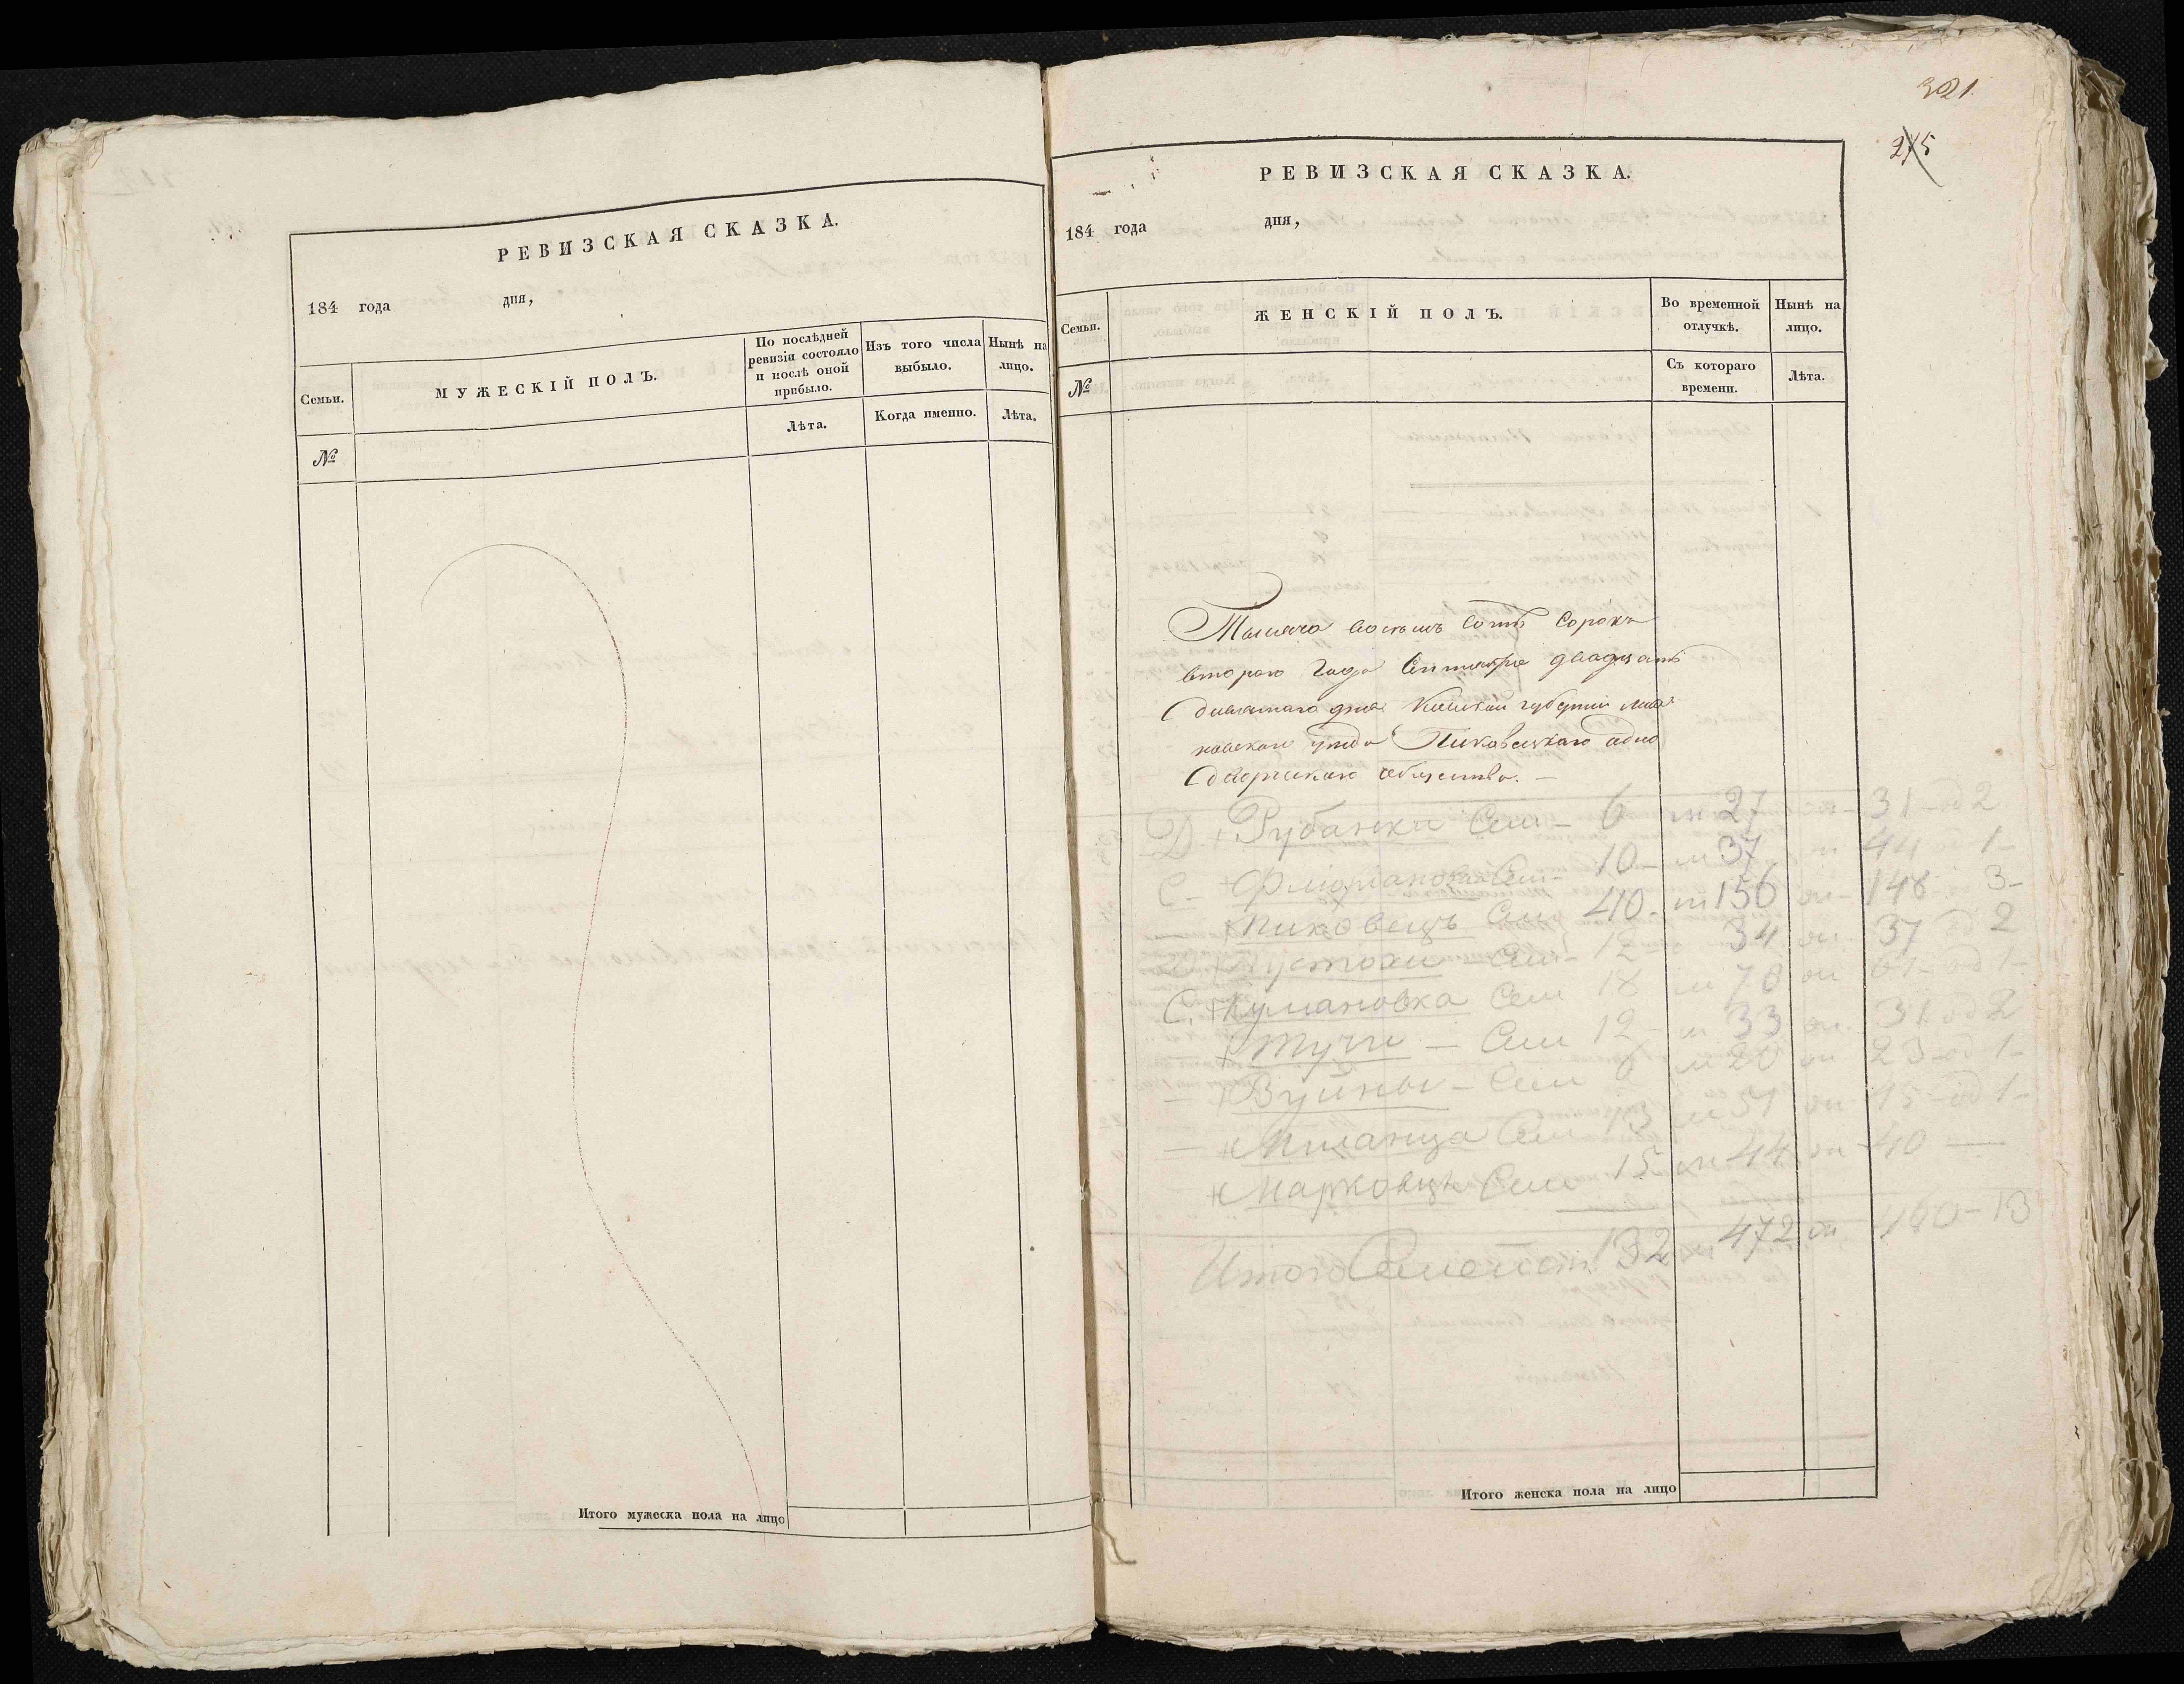 РЕВИЗСКАЯ СКАЗКА.
184 года дня,
Семьи.
МУЖЕСКІЙ ПОЛЪ.
По послѣдней ревизіи состояло и послѣ оной прибыло.
Изъ того числа выбыло.
Нынѣ на лицо.
№
Лѣта.
Когда именно.
Лѣта.
Итого мужеска пола на лицо
321
275
РЕВИЗСКАЯ СКАЗКА.
184 года дня,
Семьи.
ЖЕНСКІЙ ПОЛЪ.
Во временной отлучкѣ.
Нынѣ на лицо.
№
Съ котораго времени.
Лѣта.
Тысяча восемь сотъ сорокъ
втораго года Сентября двадцать
девятаго дня Кіевской губерніи
уѣзда Пиковецкаго одно
дворческаго общества. —
Д. Рубанки Сем — 6 м 27 31 — од 2
С — Сем — 10 — м 37 44 од 1 —
Пиковецъ Сем 40 — м 156 148 3 —
Сем — 12 — 34 37 од 2
С. Кумановка Сем 18 м 78 61 — од 1 —
Тучи — Сем 12 — м 33 31 од 2
— Войны — Сем 6 м 20 23 — од 1 —
— Сем 13 м 51 45 — од 1 —
Марковцы Сем 15 м 44 40 —
Итого 132 472 460 — 13
Итого женска пола на лицо